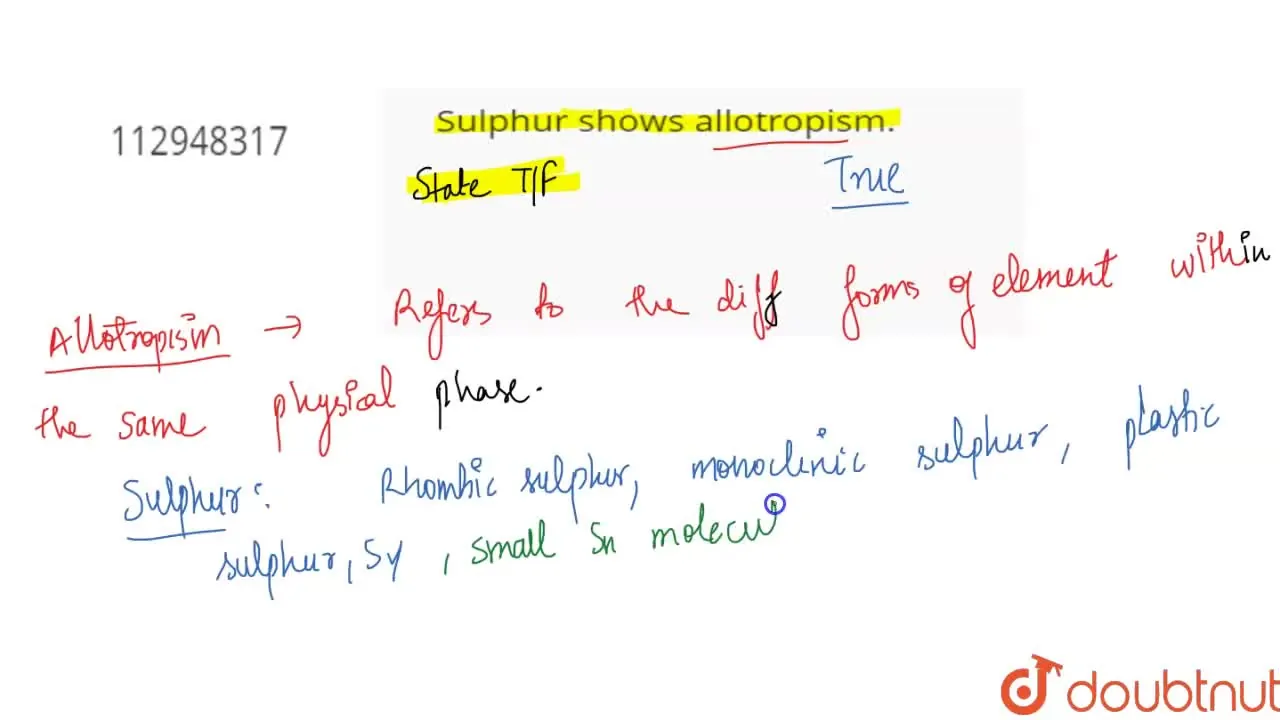 112948317
Sulphur shows allotropism.
State T/F True
Allotropism → Refers to the diff forms of element within
the same physical phase.
Sulphur: Rhombic sulphur, monoclinic sulphur, plastic
sulphur, Sy, small Sn molecu
doubtnut